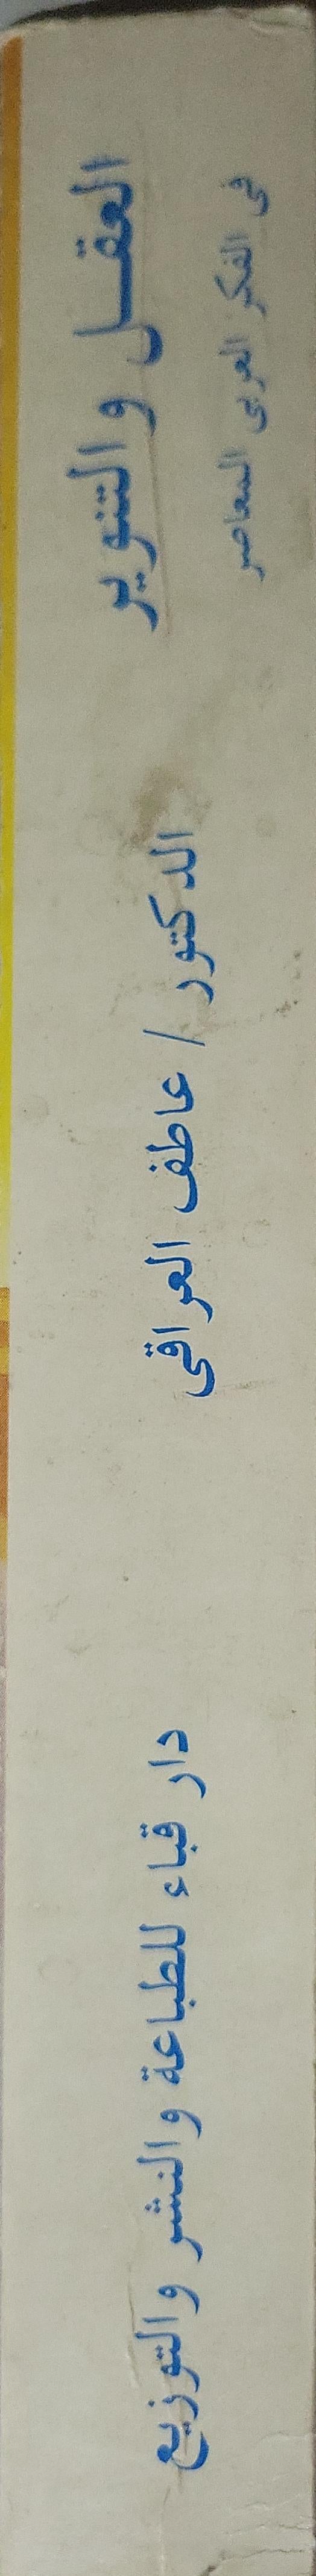 العقل والتنوير
فى الفكر العربى المعاصر
الدكتور / عاطف العراقى
دار قباء للطباعة والنشر والتوزيع